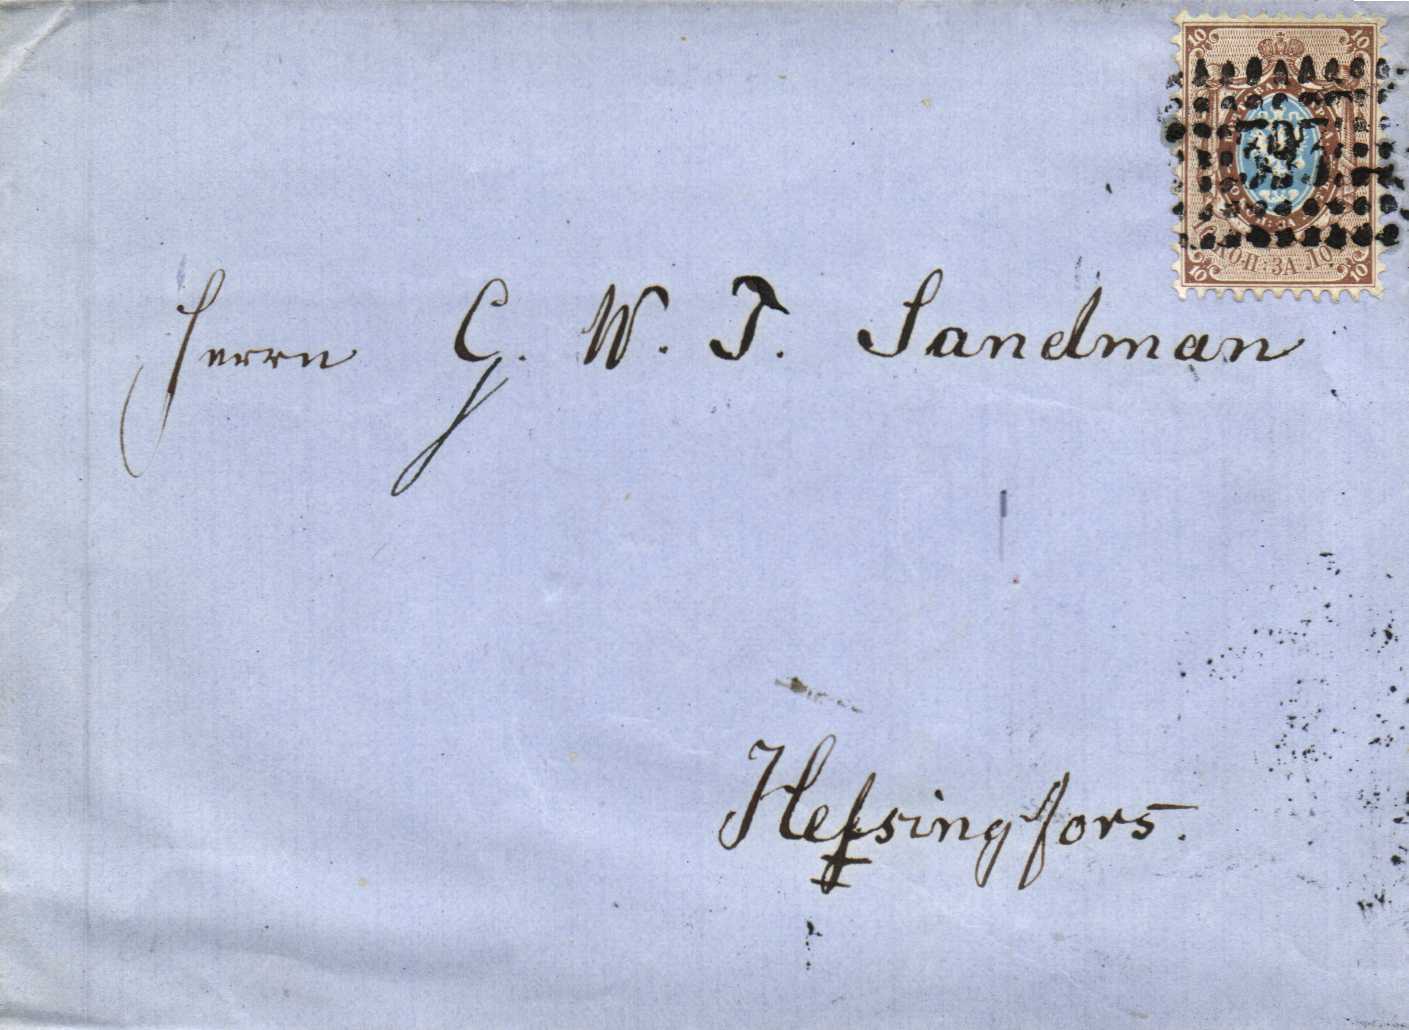 10 10
КОП: ЗА ЛО
10 10
Herrn G. W. T. Sandman
Helsingfors.